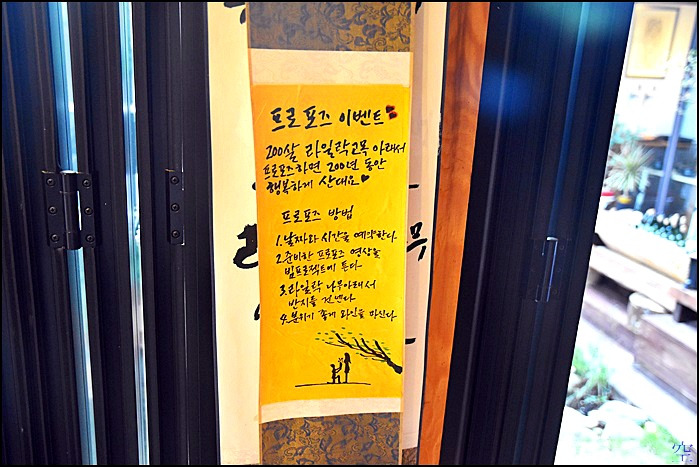 프로포즈 이벤트
200살 라일락고목 아래서
프로포즈하면 200년 동안
행복하게 산대요♥
프로포즈 방법
1.날짜와 시간을 예약한다
2.준비한 프로포즈 영상을
빔프로젝트에 튼다
3.라일락 나무아래서
반지를 건넨다
4.분위기 좋게 와인을 마신다
무